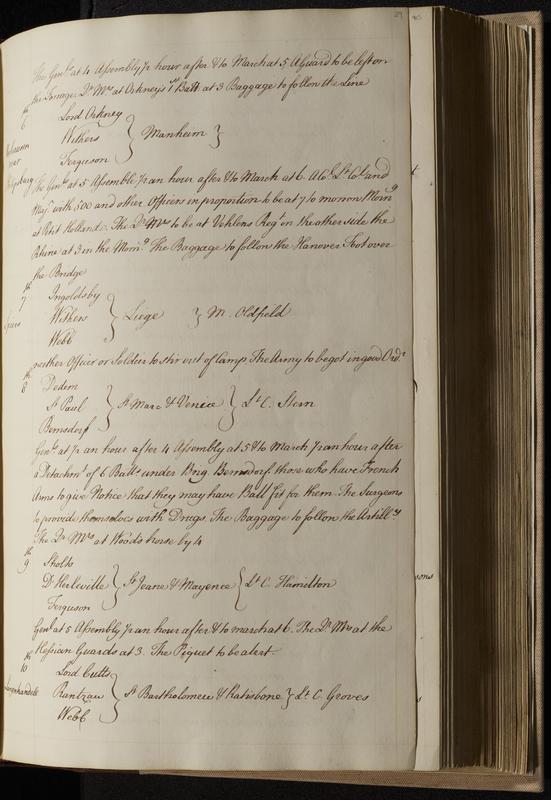 29
The Genˡˡ at 4 Assembly ½ hour after & to March at 5 A Guard to be left on
the Forrage Qʳ Mʳˢ at Orkney's 1ˢᵗ Batt at 3 Baggage to follow the Line
6
Lord Orkney
Withers } Manheim }
Ferguson
near
The Genˡˡ at 5 Assemble ½ an hour after & to March at 6. A Coˡ Lᵗ Coˡ and
Majʳ with 500 and other Officers in proportion to be at 7 to morrow Mornᵍ
at Petit Hollande. The Qʳ Mʳˢ to be at Vehlens Regᵗ on the other side the
Rhine at 3 in the Mornᵍ The Baggage to follow the Hanover Foot over
the Bridge
th
7
Ingoldsby
Spires Withers } Liege } M. Oldfield
Webb
neither Officer or Soldier to stir out of Camp. The Army to be got in good Ordʳ
th
8
Dedem
Sᵗ Paul } Sᵗ Marc & Venice } Lᵗ C. Stern
Bernsdorf
Genˡˡ at ½ an hour after 4 Assembly at 5 & to March ½ an hour after
a Detachmᵗ of 6 Battˢ under Brig Bernsdorf. those who have French
Arms to give Notice that they may have Ball fit for them. The Surgeons
to provide themselves with Drugs. The Baggage to follow the Artillʳʸ
The Qʳ Mʳˢ at Woods horse by 4
th
9
Sholto
D'Herleville } Sᵗ Jeane & Mayence { Lᵗ C. Hamilton
Ferguson
Genˡˡ at 5 Assembly ½ an hour after & to march at 6. The Qʳ Mʳˢ at the
Hessian Guards at 3. The Piquet to be alert.
th
10
Lord Cutts
Rantzau } Sᵗ Bartholomew & Ratisbone } Lᵗ C. Groves
Webb